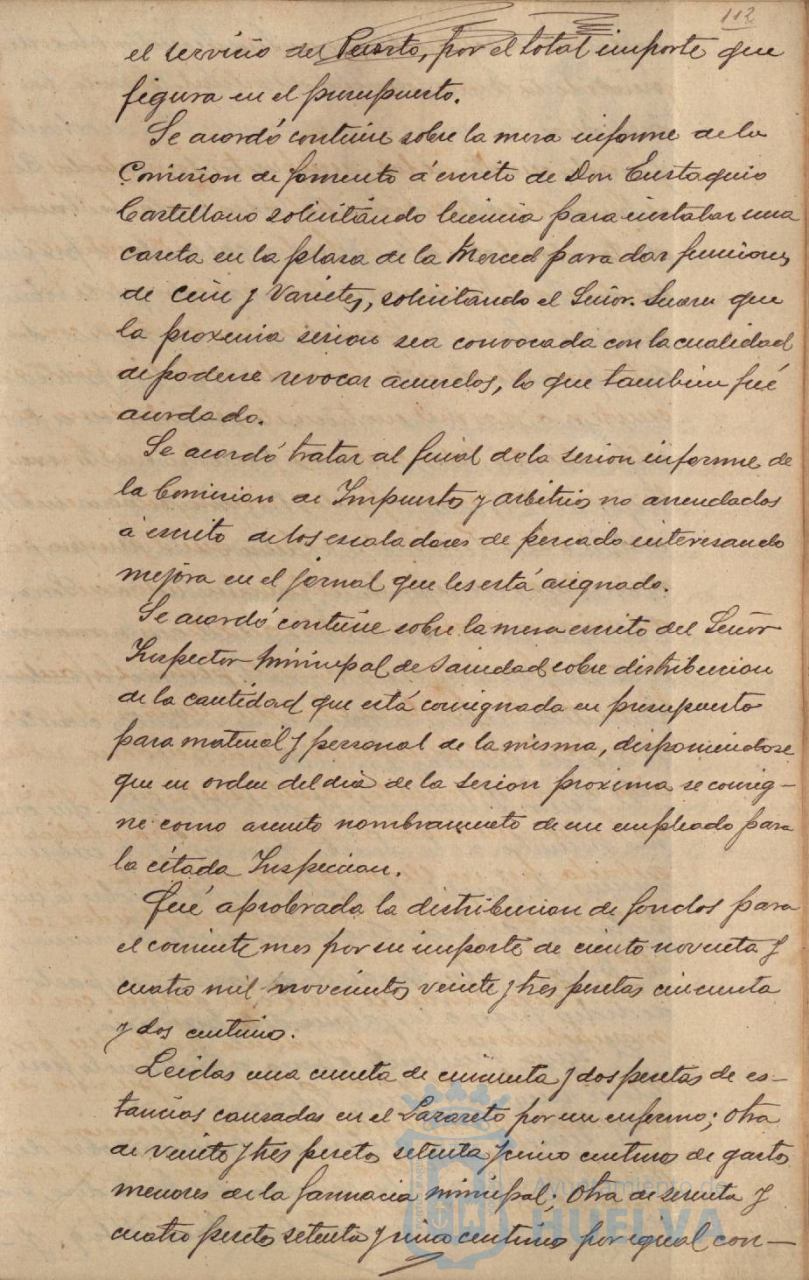 112
el servicio del Puerto, por el total importe que
figura en el presupuesto.
Se acordó continúe sobre la mesa informe de la
Comision de fomento á escrito de Don Eustaquio
Castellano solicitando licencia para instalar una
caseta en la plaza de la Merced para dar funciones
de Cine y Varietes, solicitando el Señor. Suarez que
la proxima sesion sea convocada con la cualidad
de poderse revocar acuerdos, lo que tambien fué
acordado.
Se acordó tratar al final de la sesion informe de
la Comision de Impuestos y arbitrios no arrendados
á escrito de los escaladores de pescado interesando
mejora en el jornal que les está asignado.
Se acordó continúe sobre la mesa escrito del Señor
Inspector Municipal de Sanidad sobre distribucion
de la cantidad que está consignada en presupuesto
para material y personal de la misma, disponiendose
que en orden del dia de la sesion proxima se consig-
ne como asunto nombramiento de un empleado para
la citada Inspeccion.
Fué aprobada la distribucion de fondos para
el corriente mes por su importe de ciento noventa y
cuatro mil novecientos veinte y tres pesetas cincuenta
y dos centimos.
Leidas una cuenta de cincuenta y dos pesetas de es-
tancias causadas en el Lazareto por un enfermo; otra
de veinte y tres pesetas setenta y cinco centimos de gastos
menores de la farmacia municipal; otra de sesenta y
cuatro pesetas setenta y cinco centimos por igual con-
Ayuntamiento de
HUELVA